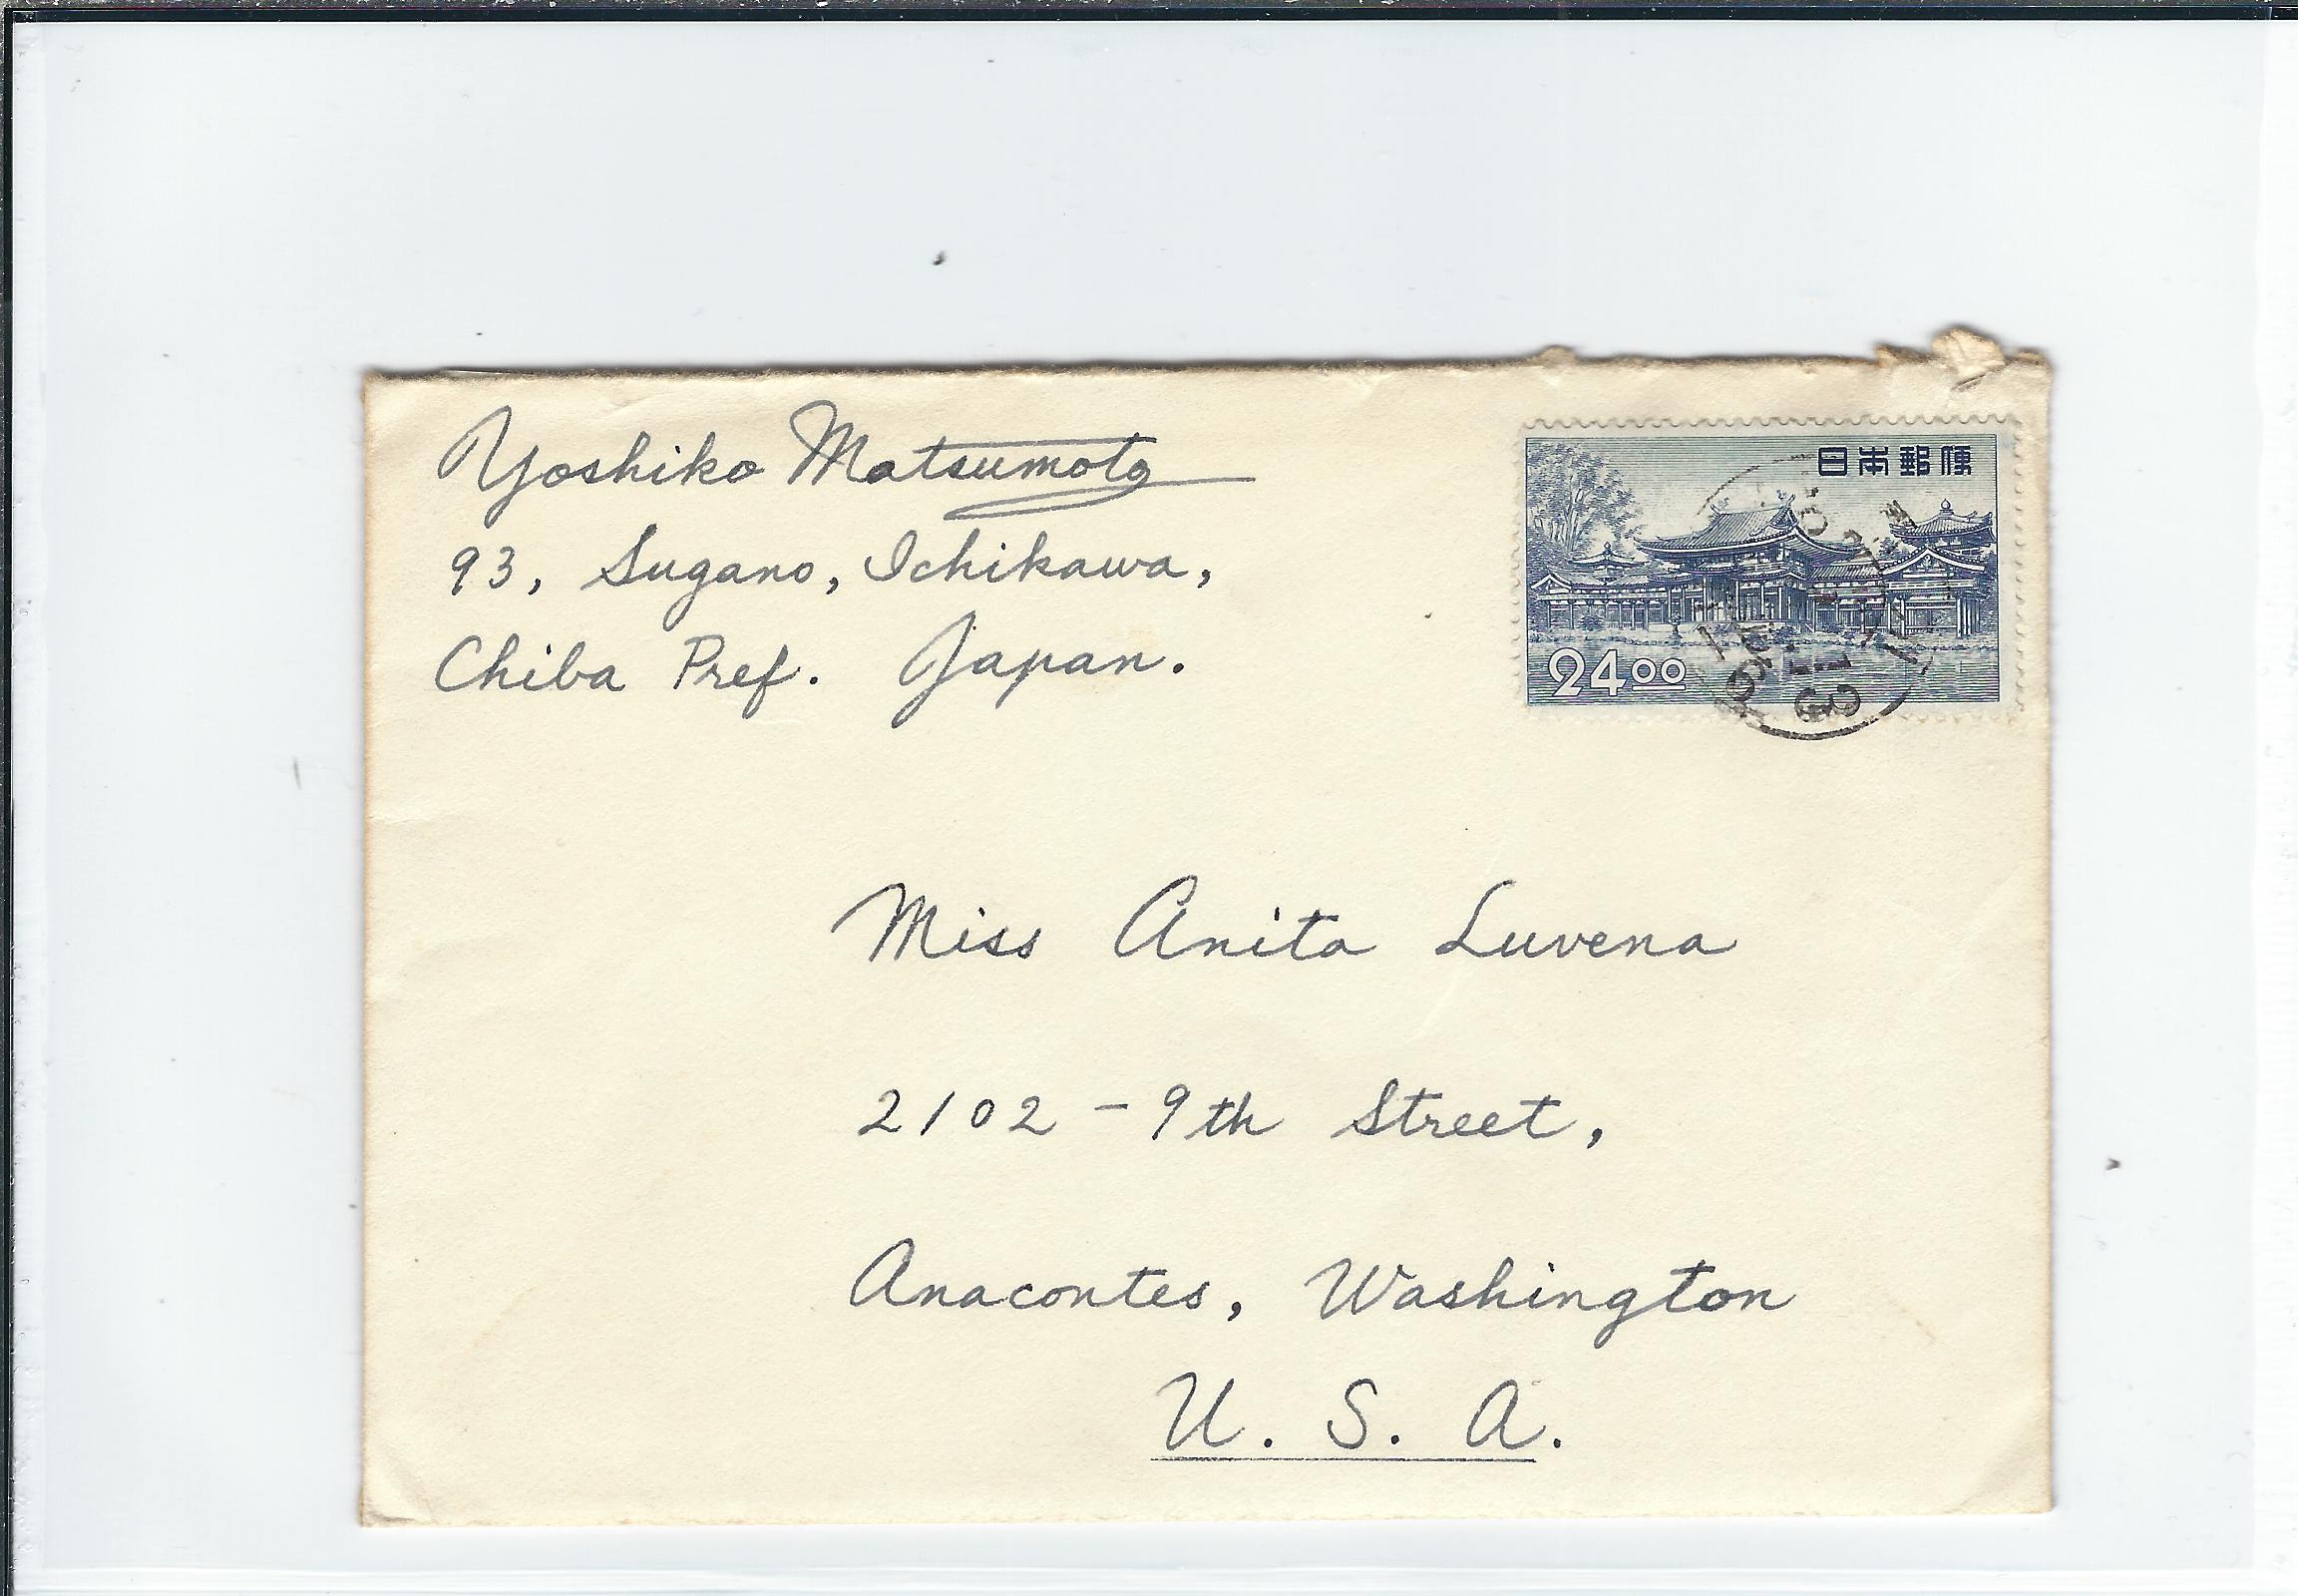 Yoshiko Matsumoto
93, Sugano, Ichikawa,
Chiba Pref. Japan.
日本郵便
24 00
Miss Anita Luvena
2102 - 9th Street,
Anacontes, Washington
U. S. A.